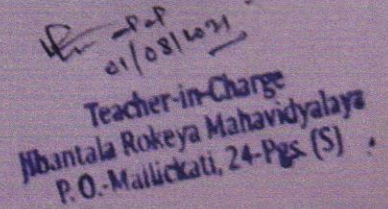 01/08/2021
Teacher-in-Charge
Jibantala Rokeya Mahavidyalaya
P.O.-Mallickati, 24-Pgs (S)